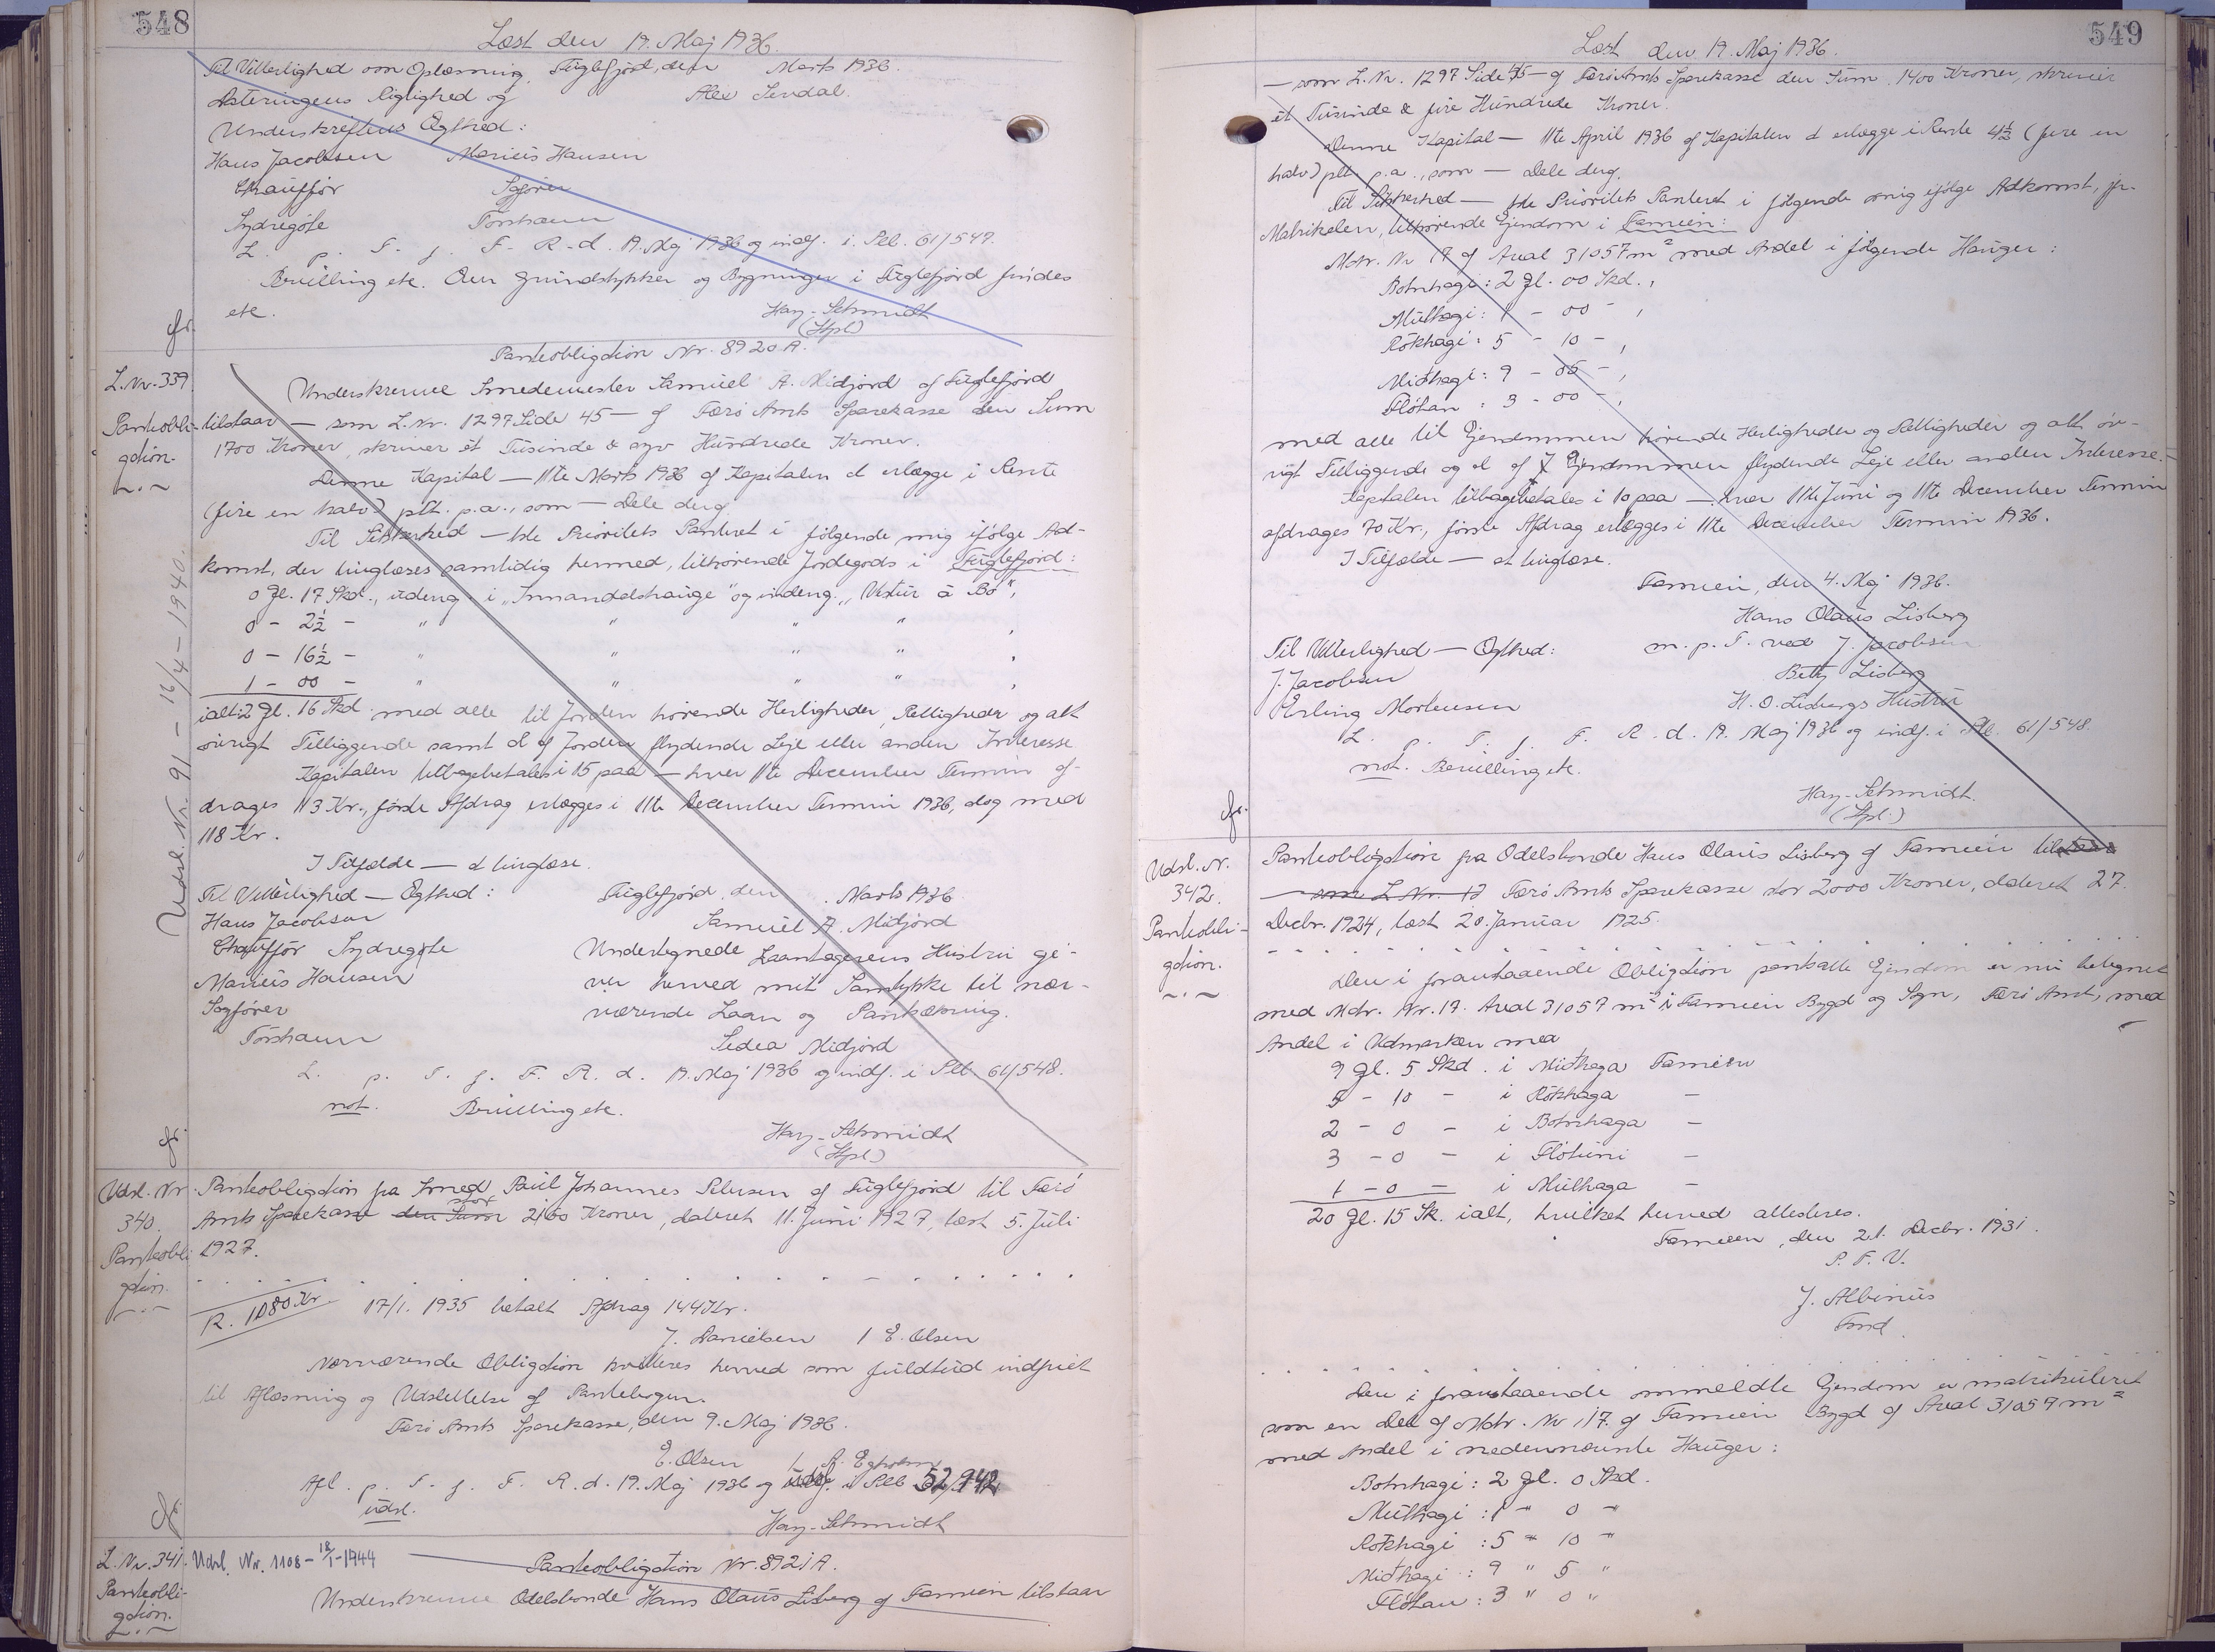 548
Læst den 19. Maj 1936.
Til Vitterlighed om Oplæsning, Fuglefjord, den Marts 1936.
Dateringens Rigtighed og Alex Sendal.
Underskriftens Ægthed:
Hans Jacobsen Marius Hansen
Chauffør Sagfører
Sydregøte Torshavn
L. p. T. f. F. R. d. 19. Maj 1936 og indf. i Ptb. 61/547.
Bevilling etc. Om Grundstykker og Bygninger i Fuglefjord findes
etc. Hay-Schmidt
(Hpl)
L. Nr. 339.
Pantobli-
gation.
Pantobligation Nr. 8920 A.
Underskrevne Smedemester Samuel A. Midjord af Fuglefjord
tilstaar — som L. Nr. 1297 Side 45 — af Færø Amts Sparekasse den Sum
1700 Kroner, skriver ét Tusinde & syv Hundrede Kroner.
Denne Kapital — 11te Marts 1936 af Kapitalen at erlægge i Rente
(fire en halv) pCt. p.a., som — Dele deraf.
Til Sikkerhed — 1ste Prioritets Panteret i følgende mig ifølge Ad-
komst, der tinglæses samtidig hermed, tilhørende Jordegods i Fuglefjord:
0 Gl. 17 Skd., udeng. i "Innandelshauge" og indeng. "Vestur á Bø",
0 - 2½ - " " " " ,
0 - 16½ - " " " " ,
1 - 00 - " " " " ,
ialt: 2 Gl. 16 Skd. med alle til Jorden hørende Herligheder, Rettigheder og alt
øvrigt Tilliggende samt al af Jorden flydende Leje eller anden Interesse
Kapitalen tilbagebetales i 15 paa — hver 11te December Termin af-
drages 113 Kr., første Afdrag erlægges i 11te December Termin 1936, dog med
118 Kr.
I Tilfælde — at tinglæse.
Til Vitterlighed — Ægthed: Fuglefjord, den . Marts 1936
Hans Jacobsen Samuel A. Midjord
Chauffør Sydregøte Undertegnede Laantagerens Hustru gi-
Marius Hansen ver herved mit Samtykke til nær-
Sagfører værende Laan og Pantsætning.
Torshavn Sedea Midjord
L. p. T. f. F. R. d. 19. Maj 1936 og indf. i Ptb. 61/548.
not. Bevilling etc.
Hay-Schmidt
(Hpl)
Udsl. Nr. 91 — 16/4 — 1940.
Udsl. Nr.
340.
Pantobli
gation.
Pantobligation fra Smed Paul Johannes Petersen af Fuglefjord til Færø
Amts Sparekasse den Sum stor 2160 Kroner, dateret 11. Juni 1927, læst 5. Juli
1927.
R. 1080 Kr. 17/1. 1935 betalt Afdrag 144 Kr.
J. Danielsen / E. Olsen
Nærværende Obligation kvitteres herved som fuldtud indfriet
til Aflæsning og Udslettelse af Pantebogen.
Færø Amts Sparekasse, den 9. Maj 1936.
E. Olsen / A. Egholm
Afl. p. T. f. F. R. d. 19. Maj 1936 og udsl. i Ptb 52/942
udsl.
Hay-Schmidt
L. Nr. 341. Udsl. Nr. 1108 - 18/1 - 1944
Pantobli-
gation.
Pantobligation Nr. 8921 A.
Underskrevne Odelsbonde Hans Olaus Lisberg af Famien tilstaar
549
Læst den 19. Maj 1936.
— som L. Nr. 1297 Side 45 — af Færø Amts Sparekasse den Sum 1400 Kroner, skriver
ét Tusinde & fire Hundrede Kroner.
Denne Kapital — 11te April 1936 af Kapitalen at erlægge i Rente 4½ (fire en
halv) pCt. p.a., som — Dele deraf.
Til Sikkerhed — 1ste Prioritets Panteret i følgende mig ifølge Adkomst, jfr.
Matrikelen, tilhørende Ejendom i Famien:
Matr. Nr. 17 af Areal 31057 m² med Andel i følgende Hauger:
Botnhagi: 2 Gl. 00 Skd.,
Mulhagi: 1 - 00 - ,
Rókhagi: 5 - 10 - ,
Miðhagi: 9 - 05 - ,
Flótan: 3 - 00 - ,
med alle til Ejendommen hørende Herligheder og Rettigheder og alt øv-
rigt Tilliggende og al af Ejendommen flydende Leje eller anden Interesse. —
Kapitalen tilbagebetales i 10 paa — hver 11te Juni og 11te December Termin
afdrages 70 Kr., første Afdrag erlægges i 11te December Termin 1936.
I Tilfælde — at tinglæse.
Famien, den 4. Maj 1936.
Hans Olaus Lisberg
Til Vitterlighed — Ægthed: m. p. T. ved J. Jacobsen
J. Jacobsen Betty Lisberg
Erling Mortensen H. O. Lisbergs Hustru
L. p. T. f. F. R. d. 19. Maj 1936 og indf. i Ptb. 61/548.
not. Bevilling etc.
Hay-Schmidt.
(Hpl.)
Udsl. Nr.
342.
Pantobli-
gation.
Pantobligation fra Odelsbonde Hans Olaus Lisberg af Famien til
som L. Nr. 12 Færø Amts Sparekasse stor 2000 Kroner, dateret 27.
Decbr. 1924, læst 20. Januar 1925.
Den i foranstaaende Obligation pantsatte Ejendom er nu betegnet
med Matr. Nr. 17. Areal 31057 m² i Famien Bygd og Sogn, Færø Amt, med
Andel i Udmarken med
9 Gl. 5 Skd. i Miðhaga Famien
5 - 10 - i Rókhaga -
2 - 0 - i Botnhaga -
3 - 0 - i Flótuni -
1 - 0 - i Mulhaga -
20 Gl. 15 Sk. ialt, hvilket herved attesteres.
Famien, den 21. Decbr. 1931.
P. F. V.
J. Albinus
Fmd.
Den i foranstaaende ommeldte Ejendom er matrikuleret
som en Del af Matr. Nr. 17. af Famien Bygd af Areal 31057 m²
med Andel i nedennævnte Hauger:
Botnhagi: 2 Gl. 0 Skd.
Mulhagi: 1 " 0 "
Rókhagi: 5 " 10 "
Miðhagi: 9 " 5 "
Flótan: 3 " 0 "